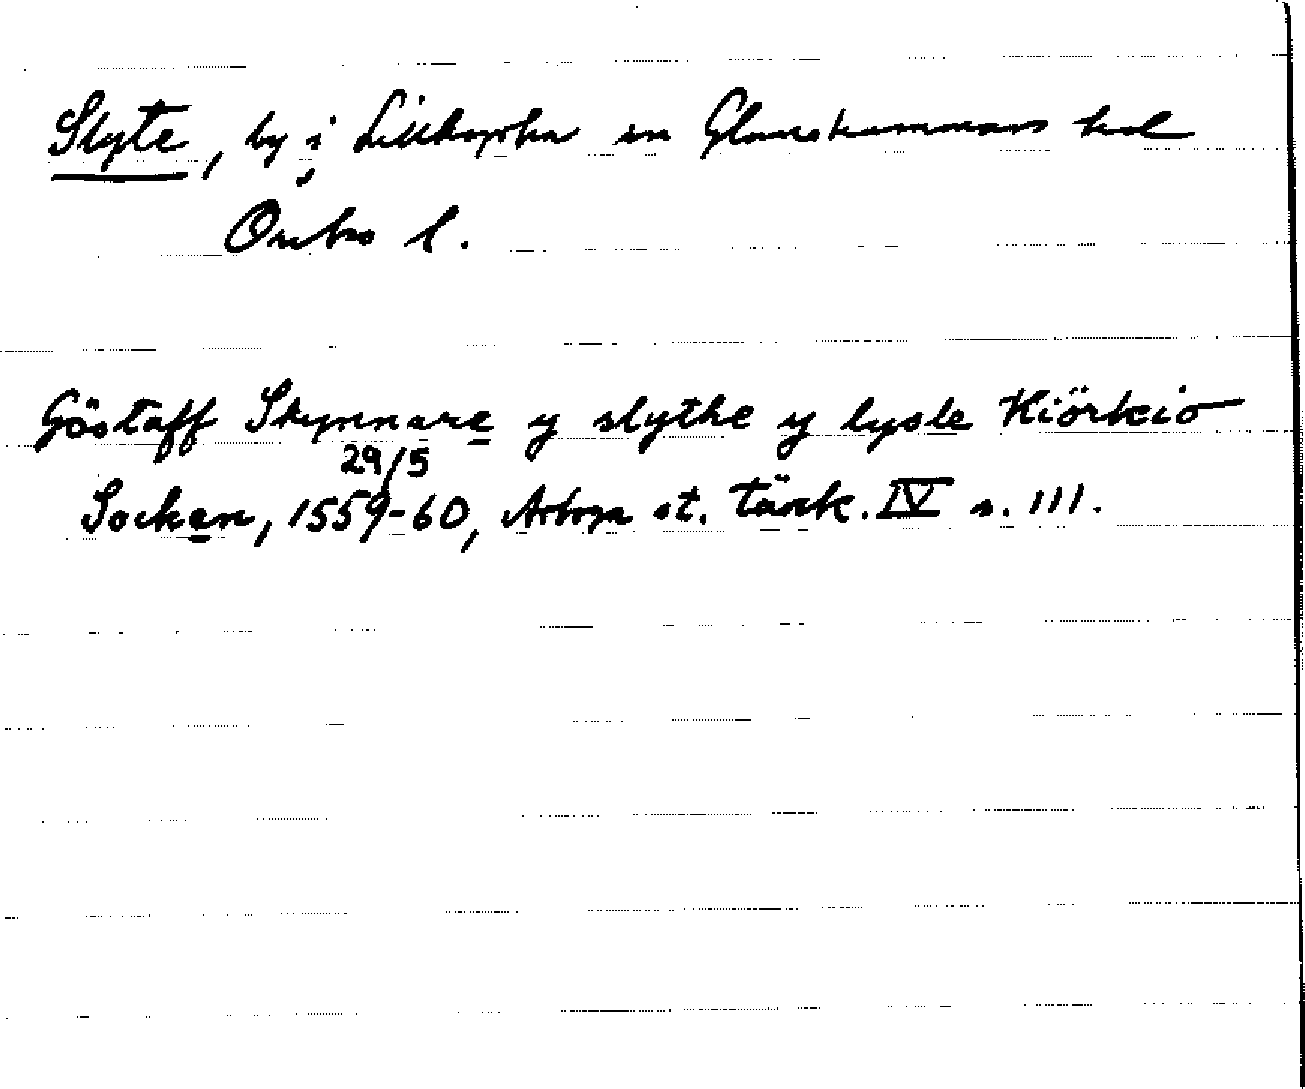 Slyte, by i Lillkyrka sn Glanshammars hd
Örebro l.
Göstaff Skynnare y slythe y lysle Kiörkio
29/5
Socken, 1559-60, Arboga st. tänk. IV s. 111.